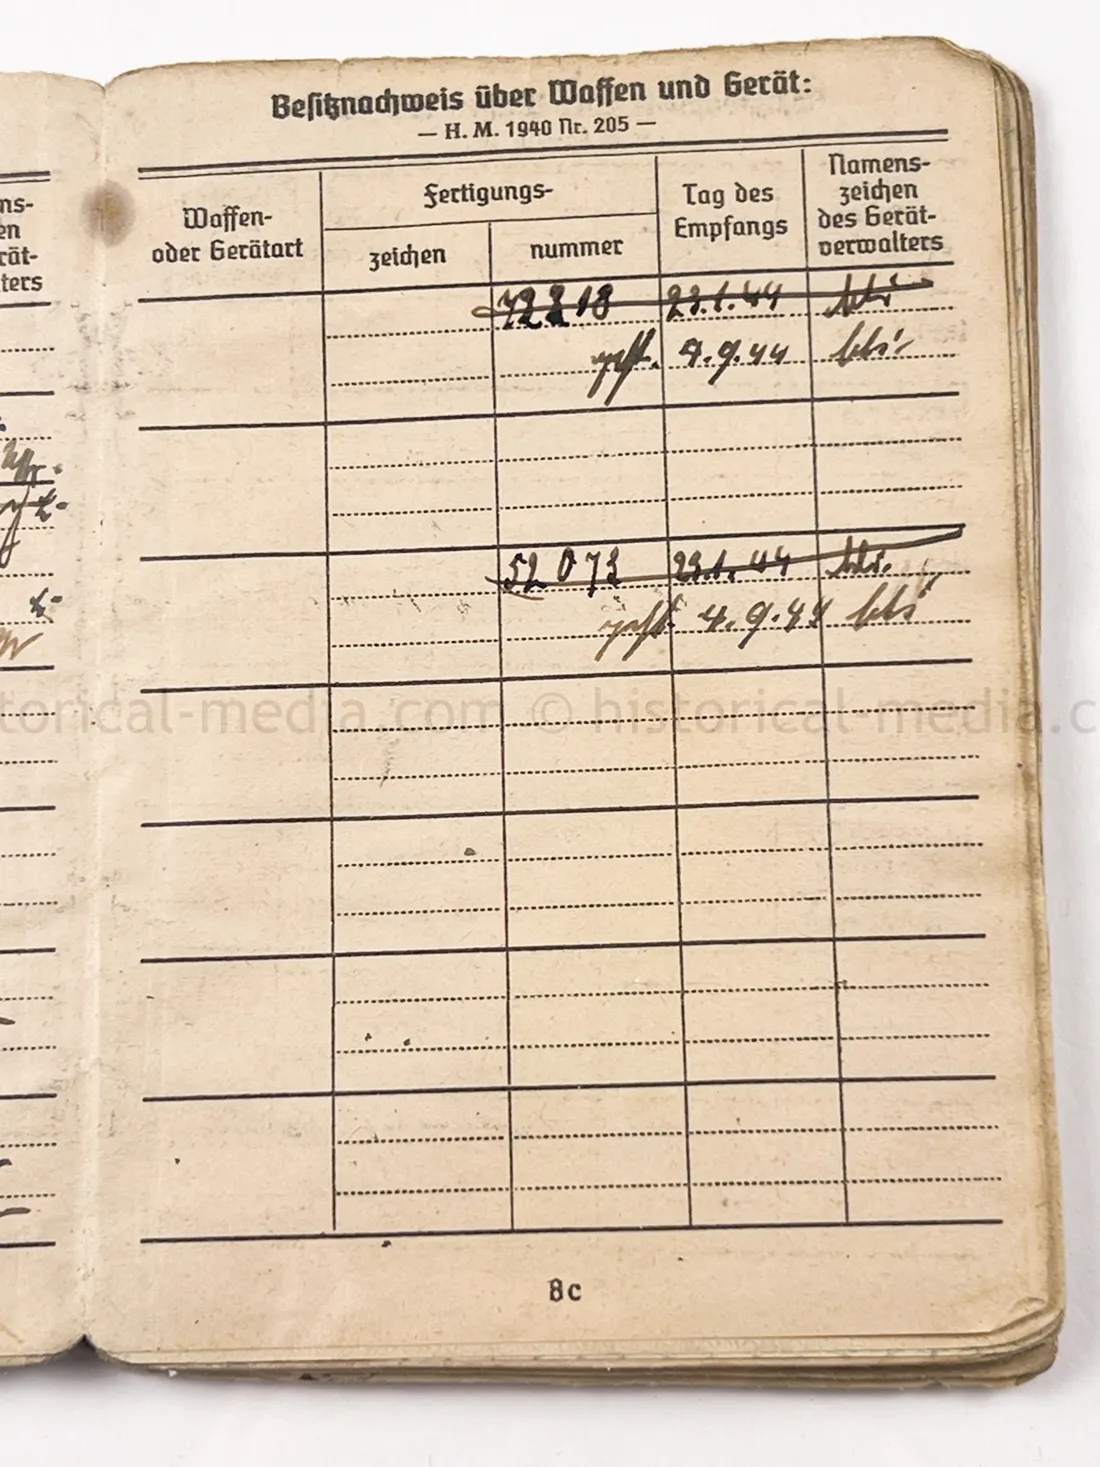 Besitznachweis über Waffen und Gerät:
— H. M. 1940 Nr. 205 —
Waffen-
oder Gerätart
Fertigungs-
zeichen
nummer
Tag des
Empfangs
Namens-
zeichen
des Gerät-
verwalters
ns-
en
rät-
ters
23.1.44
4.9.44
52073 23.1.44
4.9.44
torical-media.com © historical-media.c
8c